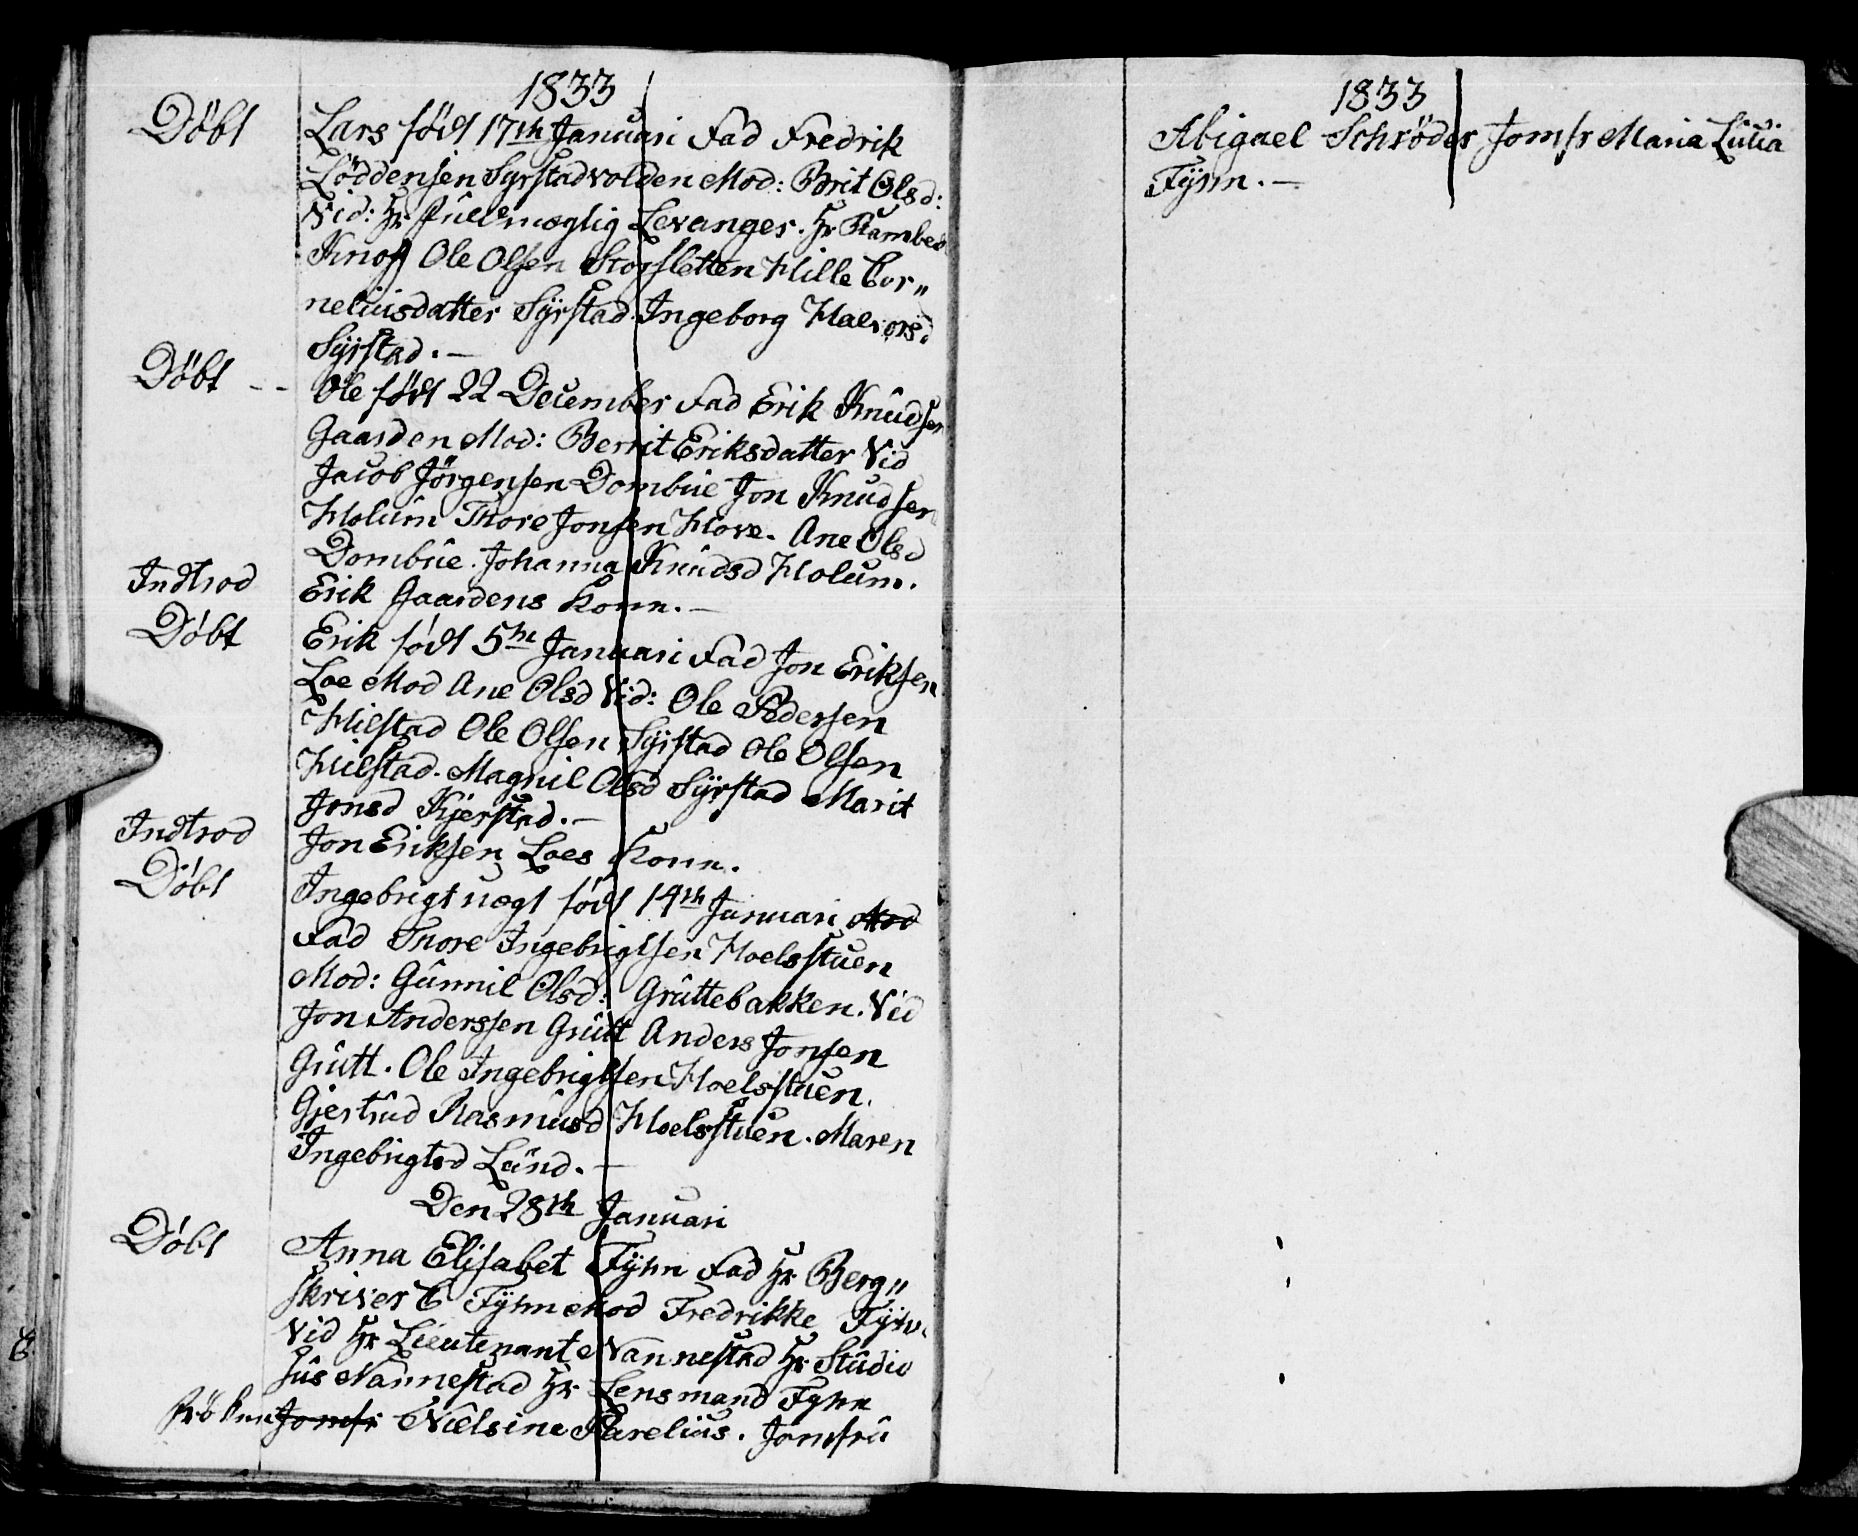 1833
Döbt Lars födt 17th Januari Fad Fredrik
Löddensen Syrstadvolden Mod: Brit Olsd:
Vid: Hr Fuldmægtig Levanger. Hr
Knoff Ole Olsen Storsletten Hille Cor„
neliusdatter Syrstad. Ingeborg Halvorsd
Syrstad.—
Döbt -- Ole födt 22 December Fad Erik Knudsen
Gaarden Mod: Berrit Eriksdatter Vid
Jacob Jörgensen Dombûe Jon Knudsen
Holûm Thore Jonsen Hove. Ane Olsd
Dombûe. Johanna Knûdsd Holum.
Indtrod Erik Gaardens Kone.—
Döbt Erik födt 5th Januari Fad Jon Eriksen
Loe Mod Ane Olsd Vid: Ole Pedersen
Hilstad Ole Olsen Syrstad Ole Olsen
Hilstad. Magnil Olsd Syrstad Marit
Jonsd Kjerstad.—
Indtrod Jon Eriksen Loes Kone.
Döbt Ingebrigt uægt födt 14th Januari Mod
Fad Thore Ingebrigtsen Hoelsstuen
Mod: Gûnnil Olsd: Grûttebakken. Vid
Jon Anderssen Grûtt Anders Jonsen
Grûtt. Ole Ingebrigtsen Hoelsstuen.
Gjertrûd Rasmûsd Hoelsstuen. Maren
Ingebrigtsd Lûnd.—
Den 28th Januari
Döbt Anna Elisabet Tyhn Fad Hr Berg„
skriver C Tyhn Mod Fredrikke Tyhn.
Vid Hr Lieutenant Nannestad Hr Stûdio
sûs Nannestad Hr Lensmand Tyhn
Fröken Jomfr Nielsine Parelius. Jomfrû
1833
Abigael Schröder Jomfr Maria Lucia
Tyhn.—